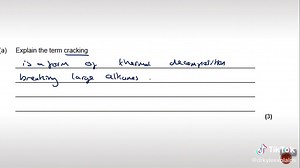 (a) Explain the term cracking
is a form of thermal decomposition
breaking large alkanes.
(3)
TikTok